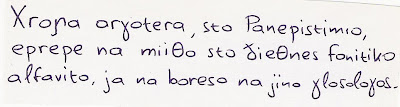 Xroɲa arɣotera, sto Panepistimio,
eprepe na miiθo sto ðieθnes fonitiko
alfavito, ja na boreso na jino ɣlosoloɣos.